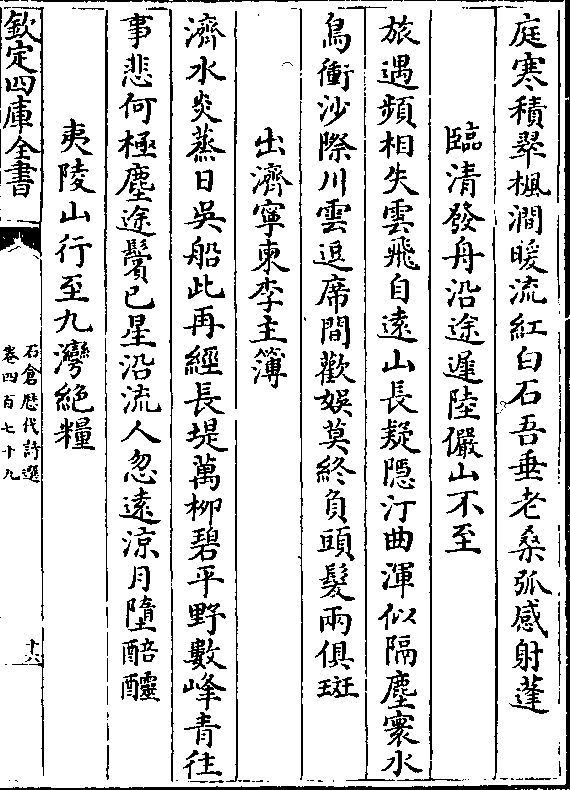 庭寒積翠楓澗暖流紅白石吾垂老桑弧感射蓬
臨清發舟沿途遲陸儼山不至
旅遇頻相失雲飛自遠山長疑隱汀曲渾似隔塵寰水
鳥衝沙際川雲逗席間歡娛莫終負頭髮兩俱斑
出濟寧柬李主簿
濟水炎蒸日吳船此再經長堤萬柳碧平野數峰青往
事悲何極塵途鬢已星沿流人忽遠涼月墮醅醽
夷陵山行至九灣絶糧
欽定四庫全書
石倉歴代詩選
卷四百七十九
十六